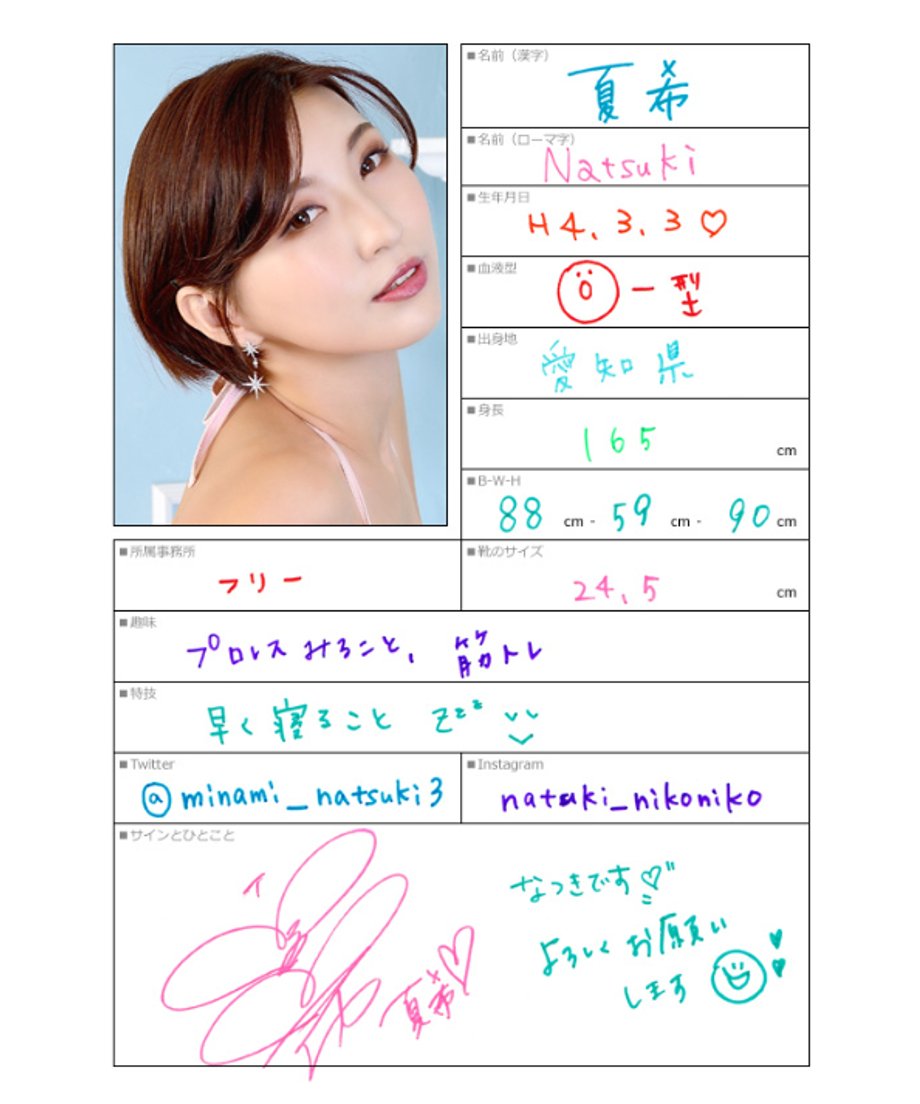 ■名前（漢字）
夏希
■名前（ローマ字）
Natsuki
■生年月日
H4.3.3♡
■血液型
O－型
■出身地
愛知県
■身長
165 cm
■B-W-H
88 cm - 59 cm - 90 cm
■所属事務所
フリー
■靴のサイズ
24.5 cm
■趣味
プロレスみること、筋トレ
■特技
早く寝ること zzz
■Twitter
@minami_natsuki3
■Instagram
natsuki_nikoniko
■サインとひとこと
なつきです♡
よろしくお願い
します
夏希♡